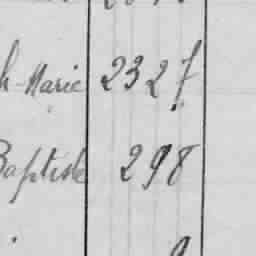 h-Marie 2327
Baptiste 298